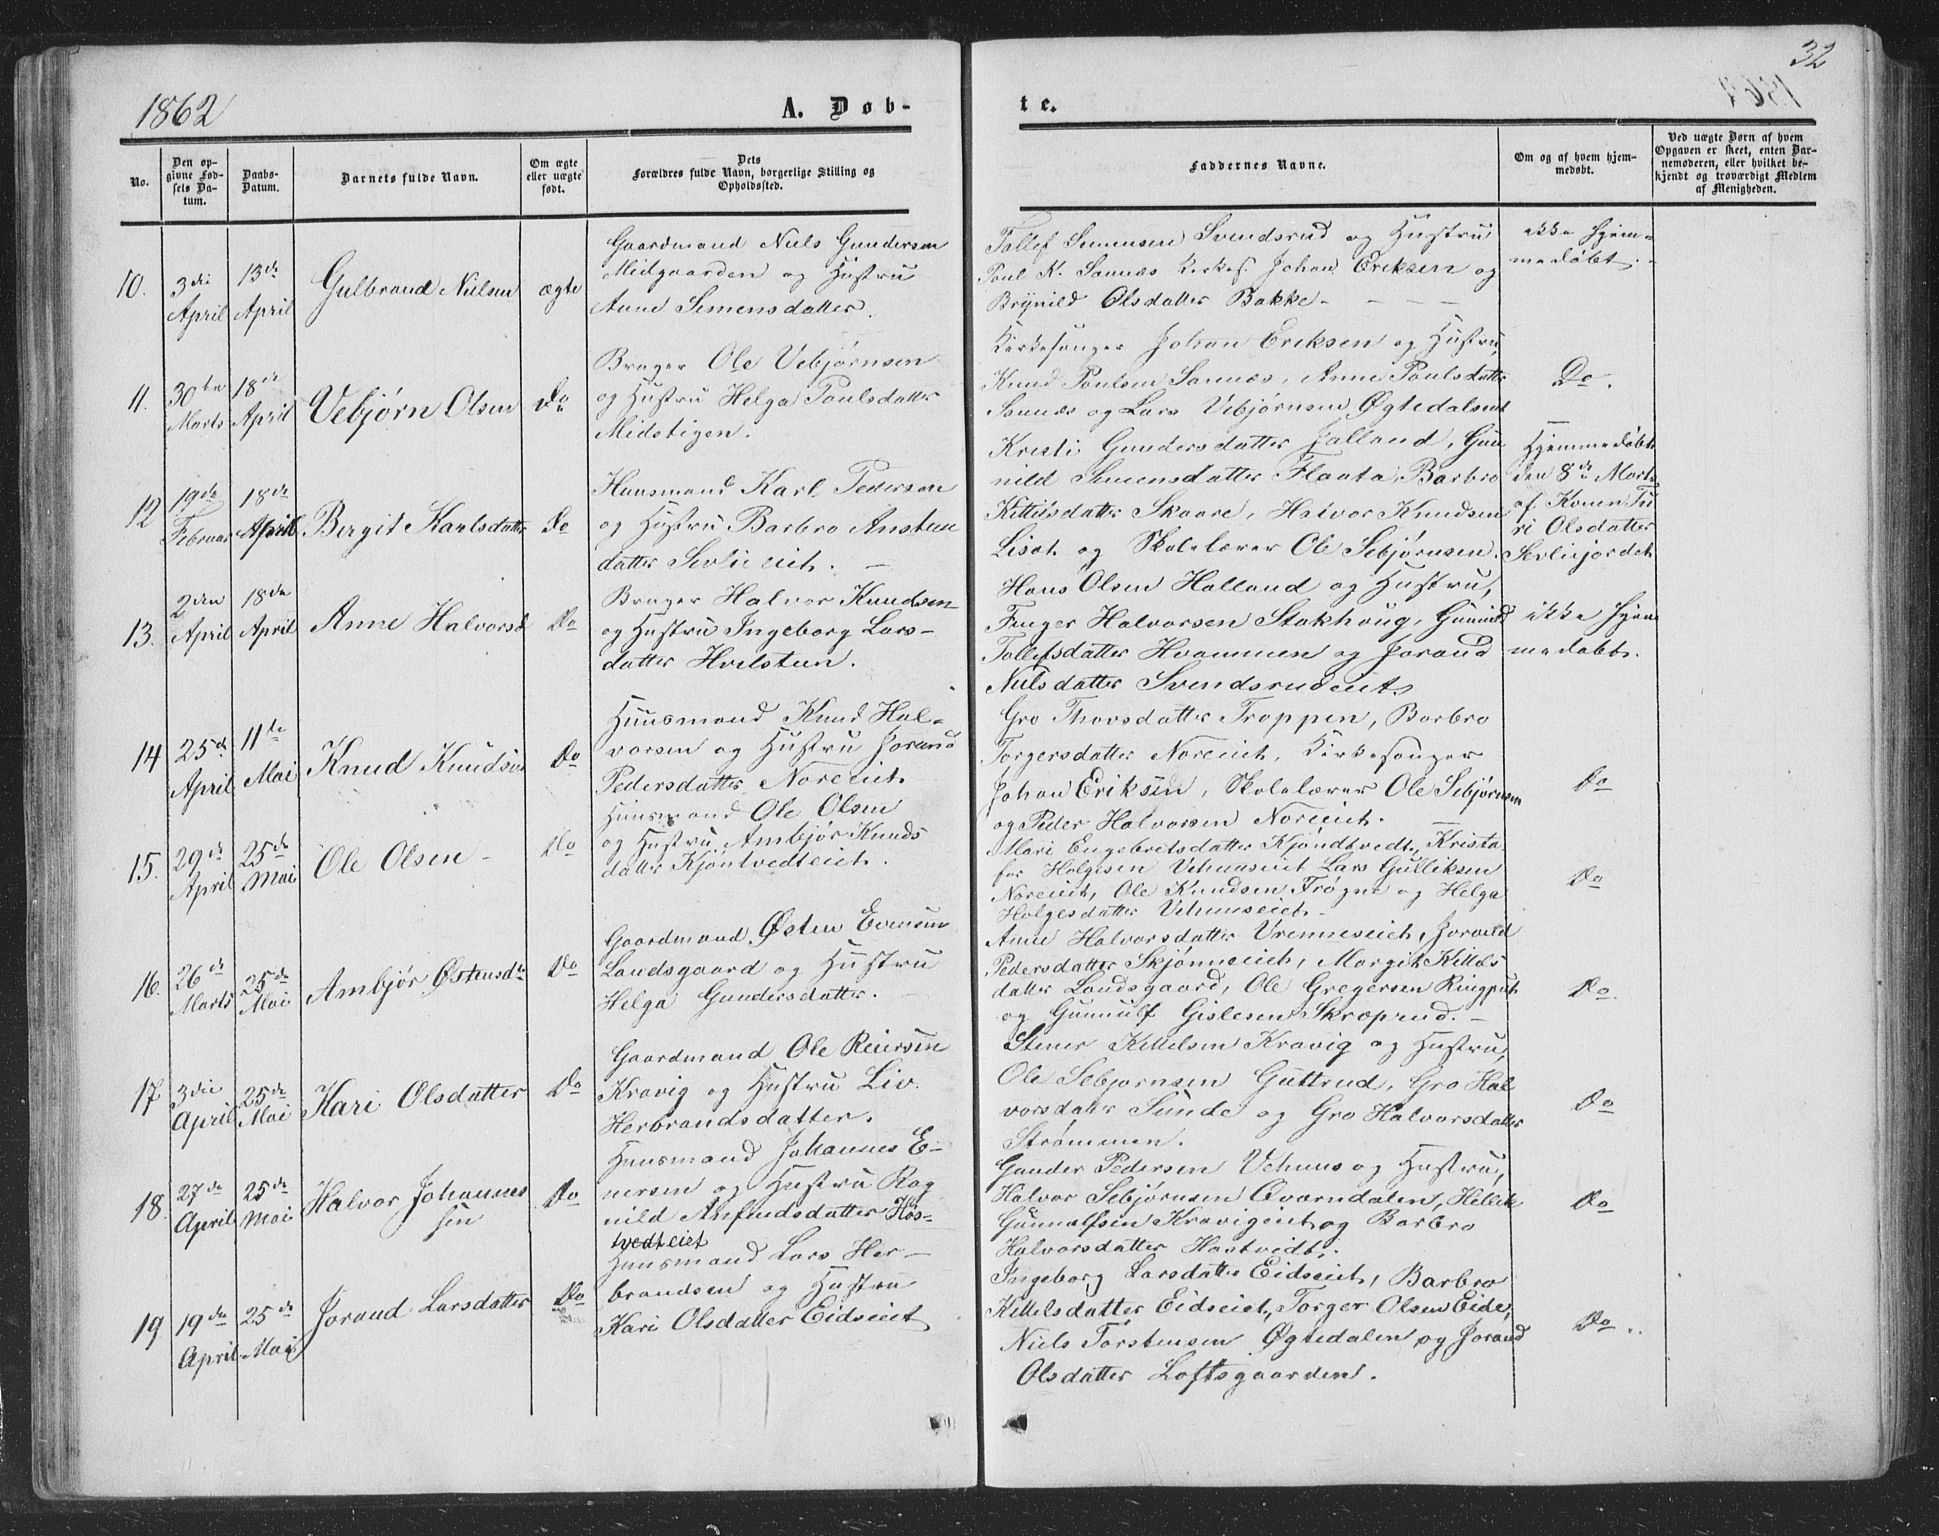 1862
A. Døb-
No.
Den op-
givne Fød-
sels Da-
tum.
Daabs-
Datum.
Barnets fulde Navn.
Om ægte
eller uægte
født.
Dets
Forældres fulde Navn, borgerlige Stilling og
Opholdssted.
10.
3die
April
13de
April
Gulbrand Nielsen
ægte
Gaardmand Niels Gundersen
Midgaarden og Hustru
Anne Simensdatter.
11.
30te
Marts
18de
April
Vebjørn Olsen
Do
Bruger Ole Vebjørnsen
og Hustru Helga Paulsdatter
Midstigen.
12
19de
Februar
18de
April
Birgit Karlsdatter
Do
Huusmand Karl Pedersen
og Hustru Barbro Anstens
datter Sevlieeiet. —
13.
2den
April
18de
April
Anne Halvorsd
Do
Bruger Halvor Knudsen
og Hustru Ingeborg Lars-
datter Hvilstun.
14
25de
April
11te
Mai
Knud Knudsen
Do
Huusmand Knud Hal-
vorsen og Hustru Jorand
Pedersdatter Noreeiet
15.
29de
April
25de
Mai
Ole Olsen -
Do
Huusmand Ole Olsen
og Hustru Ambjør Knuds
datter Kjøntvedteiet.
16.
26de
Marts
25de
Mai
Ambjør Østensdtr
Do
Gaardmand Østen Evensen
Landsgaard og Hustru
Helga Gundersdatter.
17
3die
April
25de
Mai
Kari Olsdatter
Do
Gaardmand Ole Reiersen
Kravig og Hustru Liv
Herbrandsdatter.
18
27de
April
25de
Mai
Halvor Johannes
sen
Do
Huusmand Johannes E-
nersen og Hustru Rag
nild Anfindsdatter Hos-
tvedteiet
19
19de
April
25de
Mai
Jorand Larsdatter
Do
Huusmand Lars Her-
brandsen og Hustru
Kari Olsdatter Eidseiet
32
te.
Faddernes Navne.
Om og af hvem hjem-
medøbt.
Ved uægte Børn af hvem
Opgaven er skeet, enten Bar-
nemoderen, eller hvilket be-
kjendt og troværdigt Medlem
af Menigheden.
Tollef Simensen Svendsrud og Hustru
Paul K. Sannes Kirkes. Johan Eriksen og
Brynild Olsdatter Bakke- - - -
ikke hjem-
medøbt. -
Kirkesanger Johan Eriksen og Hustru,
Knud Paulsen Sannes, Anne Paulsdatter
Sannes og Lars Vebjørnsen Øgtedalseiet
Do.
Kristi Gundersdatter Jalland, Gun
nild Simensdatter Flaata, Barbro
Kittilsdatter Skaare, Halvor Knudsen
Liset og Skolelærer Ole Sebjørnsen.
Hjemmedøbt
den 8de Marts
af Konen Tu
ri Olsdatter
Sevliejordet
Hans Olsen Halland og Hustru,
Halvorsen Stokhaug, Gunild
Tollefsdatter Hvammen og Jorand
Nilsdatter Svendsrudeiet
ikke hjem
medøbt.
Gro Thorsdatter Troppen, Barbro
Torgersdatter Noreeiet, Kirkesanger
Johan Eriksen, Skolelærer Ole Sebjørnsen
og Peder Halvorsen Noreeiet.
Do
Mari Engebretsdatter Kjøndtvedt, Krista
for Helgesen Vehuuseiet Lars Gulliksen
Noreeiet, Ole Knudsen Frøgne og Helga
Helgesdatter Vehuuseiet.
Do
Anne Halvorsdatter Vrenneseiet, Jorand
Pedersdatter Skjønneeiet, Margit Kittils
datter Landsgaard, Ole Gregersen Ringput
og Gunnulf Gislesen Skroprud. -
Do.
Stener Kittelsen Kravig og Hustru,
Ole Sebjørnsen Guttrud, Gro Hal
vorsdatter Sunde og Gro Halvorsdatter
Strømmen.
Do
Gunder Pedersen Vehuus og Hustru,
Halvor Sebjørnsen Qværndalen, Hellik
Gunnulfsen Kravigeiet og Barbro
Halvorsdatter Hostvedt.
Do
Ingeborg Larsdatter Eidseiet, Barbro
Kittelsdatter Eidseiet, Torger Olsen Eide,
Niels Torstensen Øgtedalen og Jorand
Olsdatter Loftsgaarden.
Do.